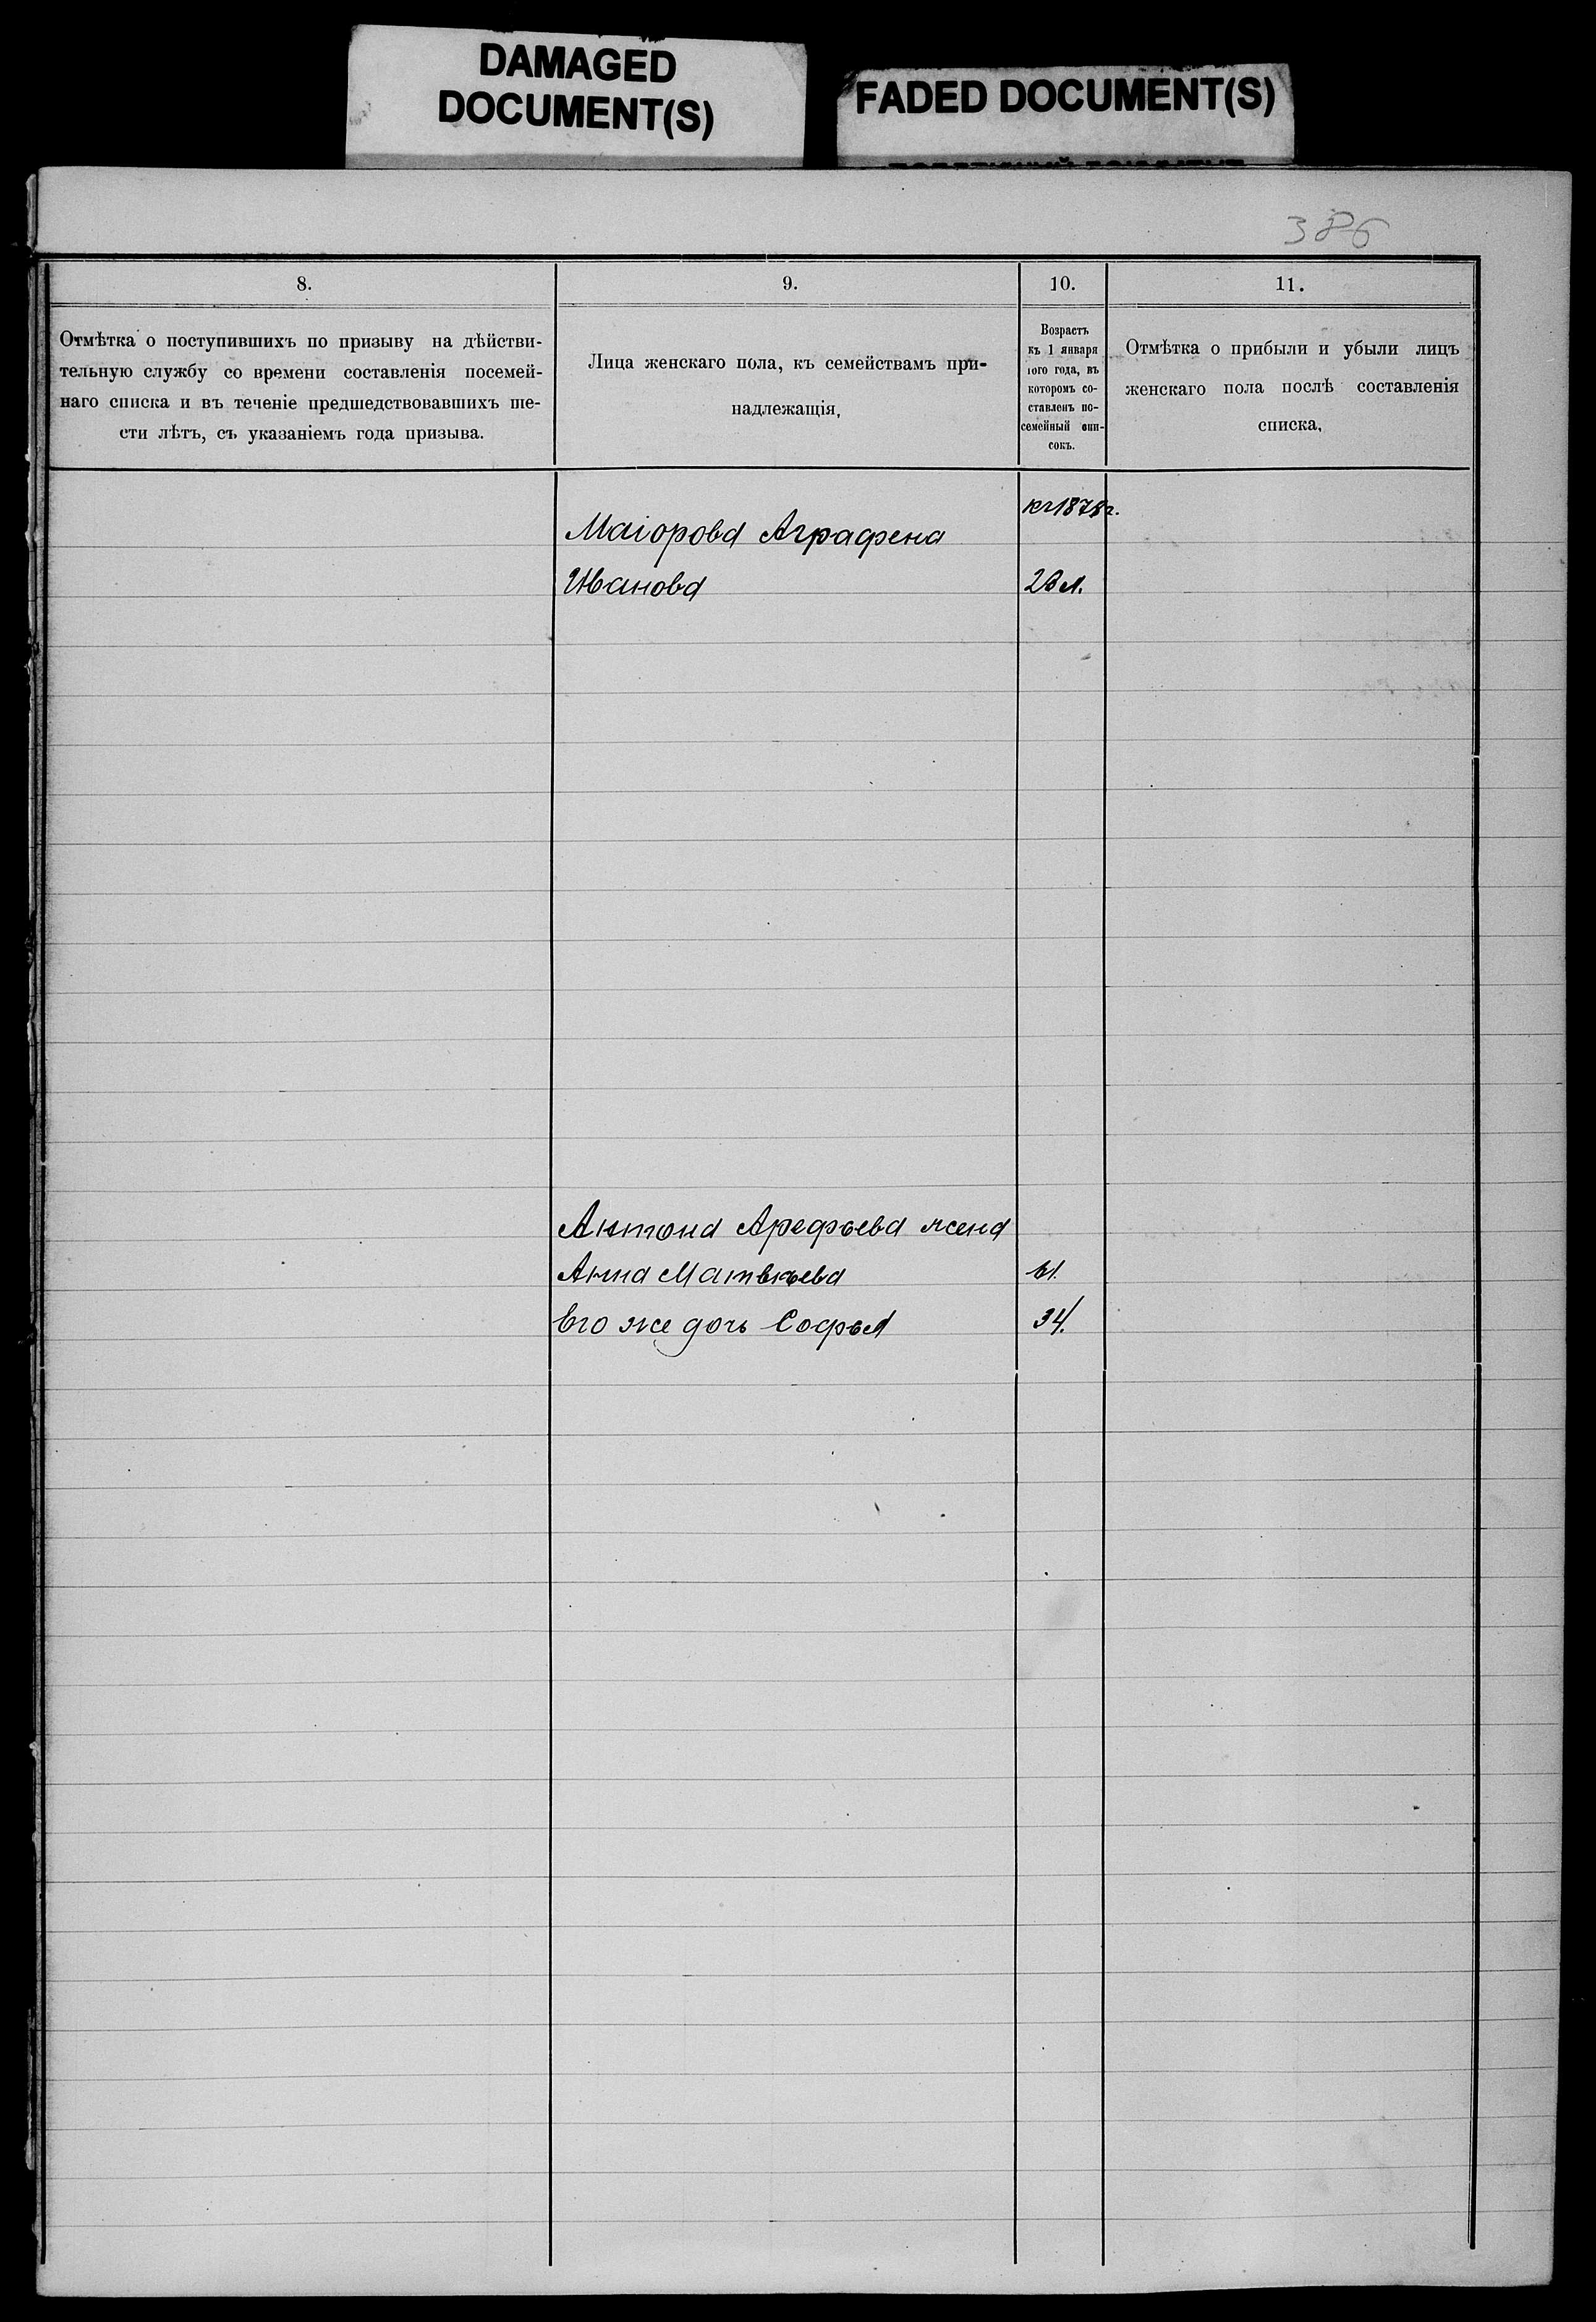 DAMAGED
DOCUMENT(S)
FADED DOCUMENT(S)
386
8.
9.
10.
11.
Отмѣтка о поступившихъ по призыву на дѣйстви-
тельную службу со времени составленія посемей-
наго списка и въ теченіе предшедствовавшихъ ше-
сти лѣтъ, съ указаніемъ года призыва.
Лица женскаго пола, къ семействамъ при-
надлежащія,
Возрастъ
къ 1 января
того года, въ
которомъ со-
ставленъ по-
семейный спи-
сокъ.
Отмѣтка о прибыли и убыли лицъ
женскаго пола послѣ составленія
списка,
1878г.
Маіорова Аграфена
Иванова
Антона Арефьева жена
Анна Матвѣева
61.
Его же дочь Софья
34.